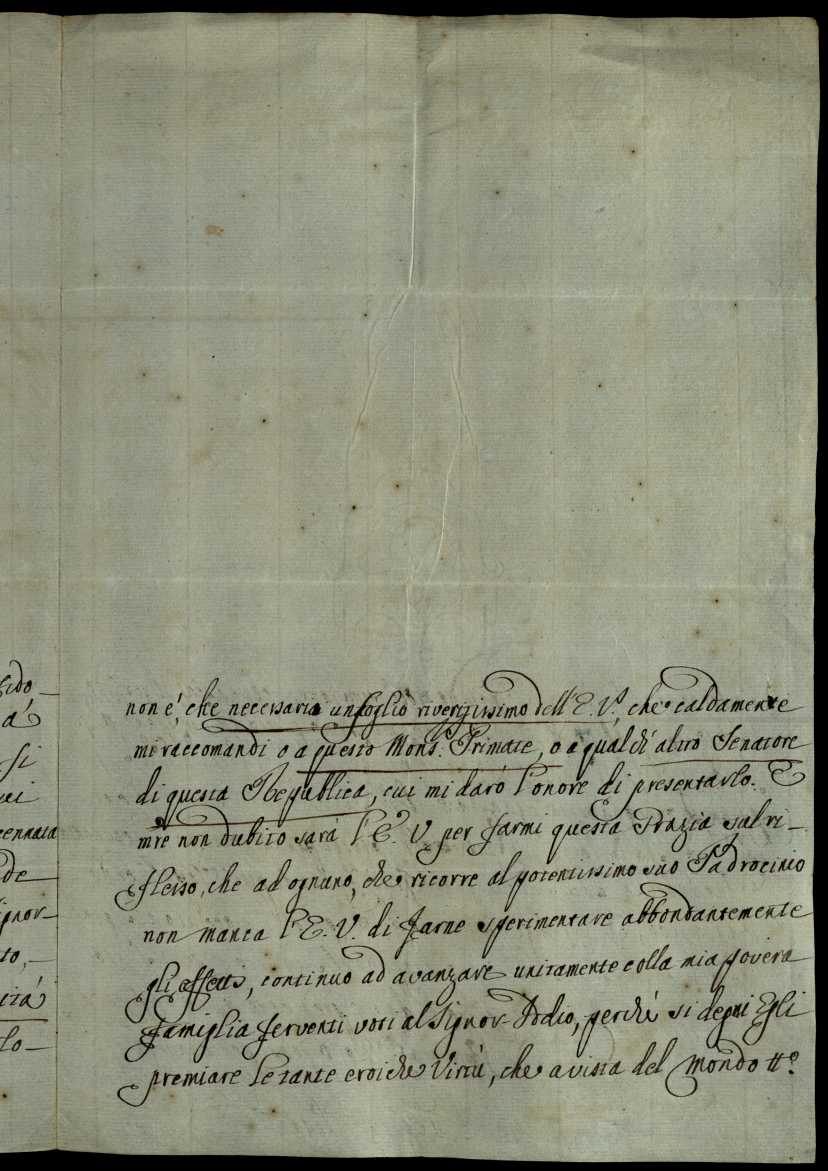 non é, che necessaria un foglio riveritissimo dell' E. V.ª, che caldamente
mi raccomandi o a questo Mons.r Primate, o a qualch' altro Senatore
di questa Republica, cui mi darò l'onore di presentarlo. E
mre non dubito sarà l'E. V. per farmi questa Grazia sul ri-
flesso, che ad ognuno, che ricorre al potentissimo suo Padrocinio
non manca l'E. V. di farne sperimentare abbondantemente
gli effetti, continuo ad avanzare unitamente colla mia povera
famiglia ferventi voti al Signor Iddio, perché si degni Egli
premiare le tante eroiche Virtù, che a vista del Mondo tt.º
cennata
de
gnor-
to,-
ità
lo-